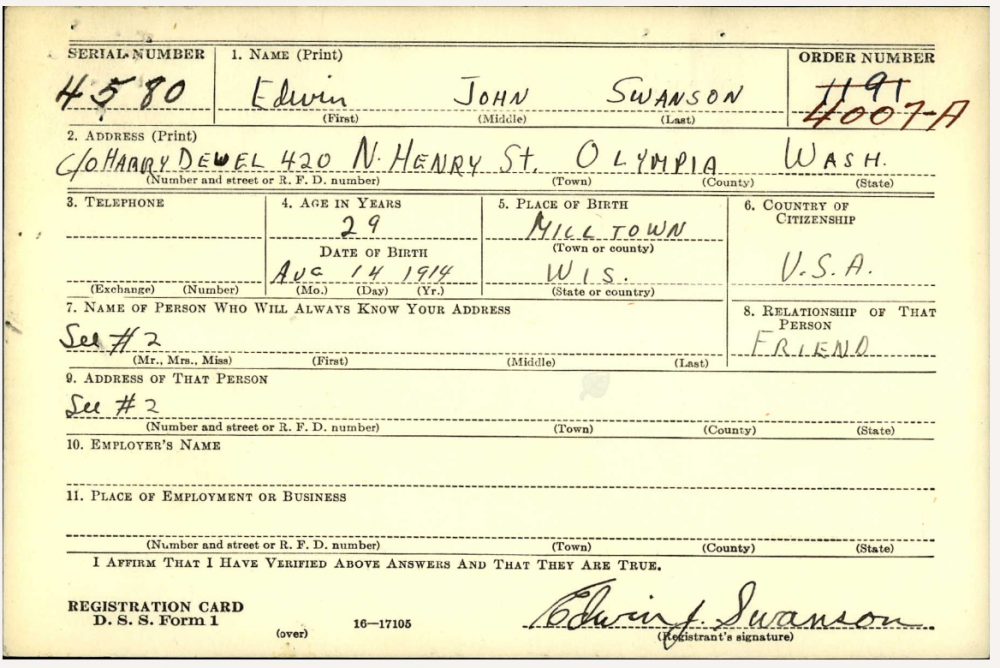 SERIAL NUMBER 1. NAME (Print) ORDER NUMBER
4580 Edwin JOHN SWANSON 1191
(First) (Middle) (Last) 4007-A
2. ADDRESS (Print)
c/o HARRY DEWEL 420 N. HENRY St. OLYMPIA WASH.
(Number and street or R. F. D. number) (Town) (County) (State)
3. TELEPHONE 4. AGE IN YEARS 5. PLACE OF BIRTH 6. COUNTRY OF CITIZENSHIP
29 MILLTOWN
DATE OF BIRTH (Town or county)
AUG 14 1914 WIS. U.S.A.
(Exchange) (Number) (Mo.) (Day) (Yr.) (State or country)
7. NAME OF PERSON WHO WILL ALWAYS KNOW YOUR ADDRESS 8. RELATIONSHIP OF THAT PERSON
See #2 FRIEND
(Mr., Mrs., Miss) (First) (Middle) (Last)
9. ADDRESS OF THAT PERSON
See #2
(Number and street or R. F. D. number) (Town) (County) (State)
10. EMPLOYER'S NAME
11. PLACE OF EMPLOYMENT OR BUSINESS
(Number and street or R. F. D. number) (Town) (County) (State)
I AFFIRM THAT I HAVE VERIFIED ABOVE ANSWERS AND THAT THEY ARE TRUE.
REGISTRATION CARD
D. S. S. Form 1 Edwin J. Swanson
(over) 16—17105 (Registrant's signature)